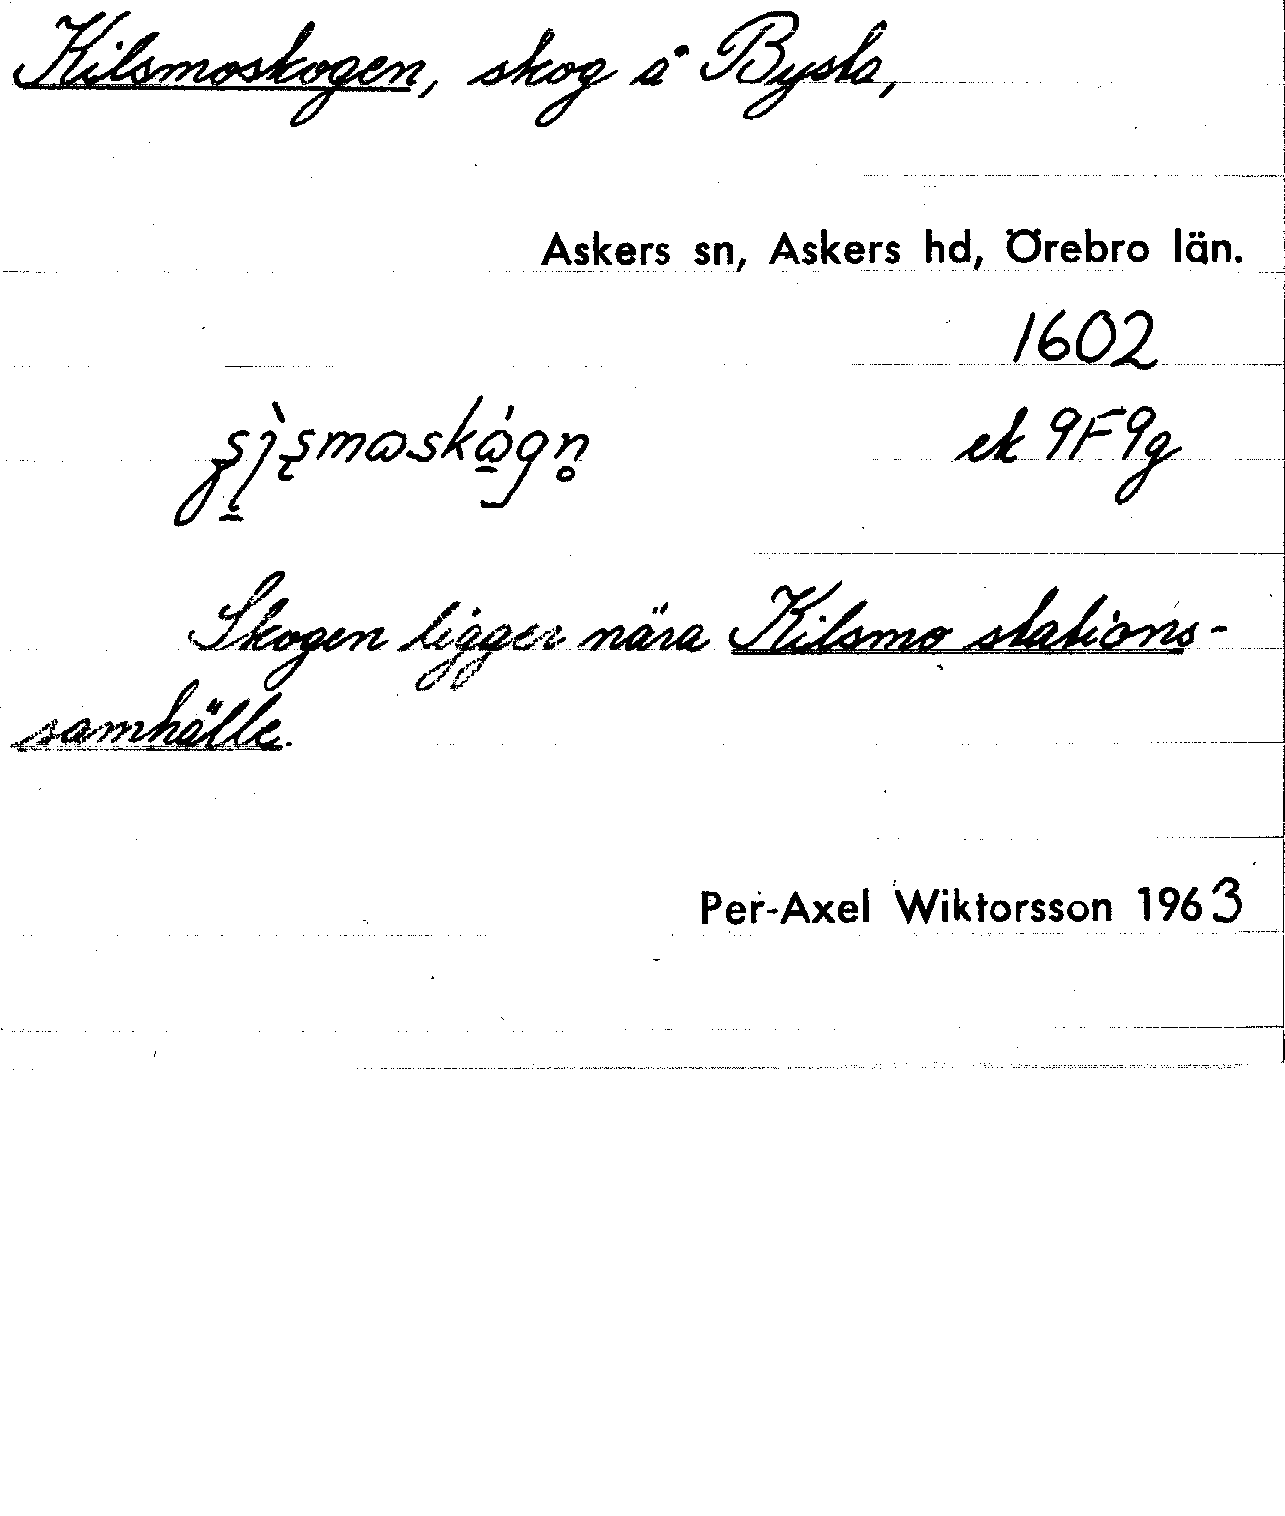 Kilsmoskogen, skog å Bysta,
Askers sn, Askers hd, Örebro län.
1602
ek 9F9g
Skogen ligger nära Kilsmo stations-
samhälle.
Per-Axel Wiktorsson 1963